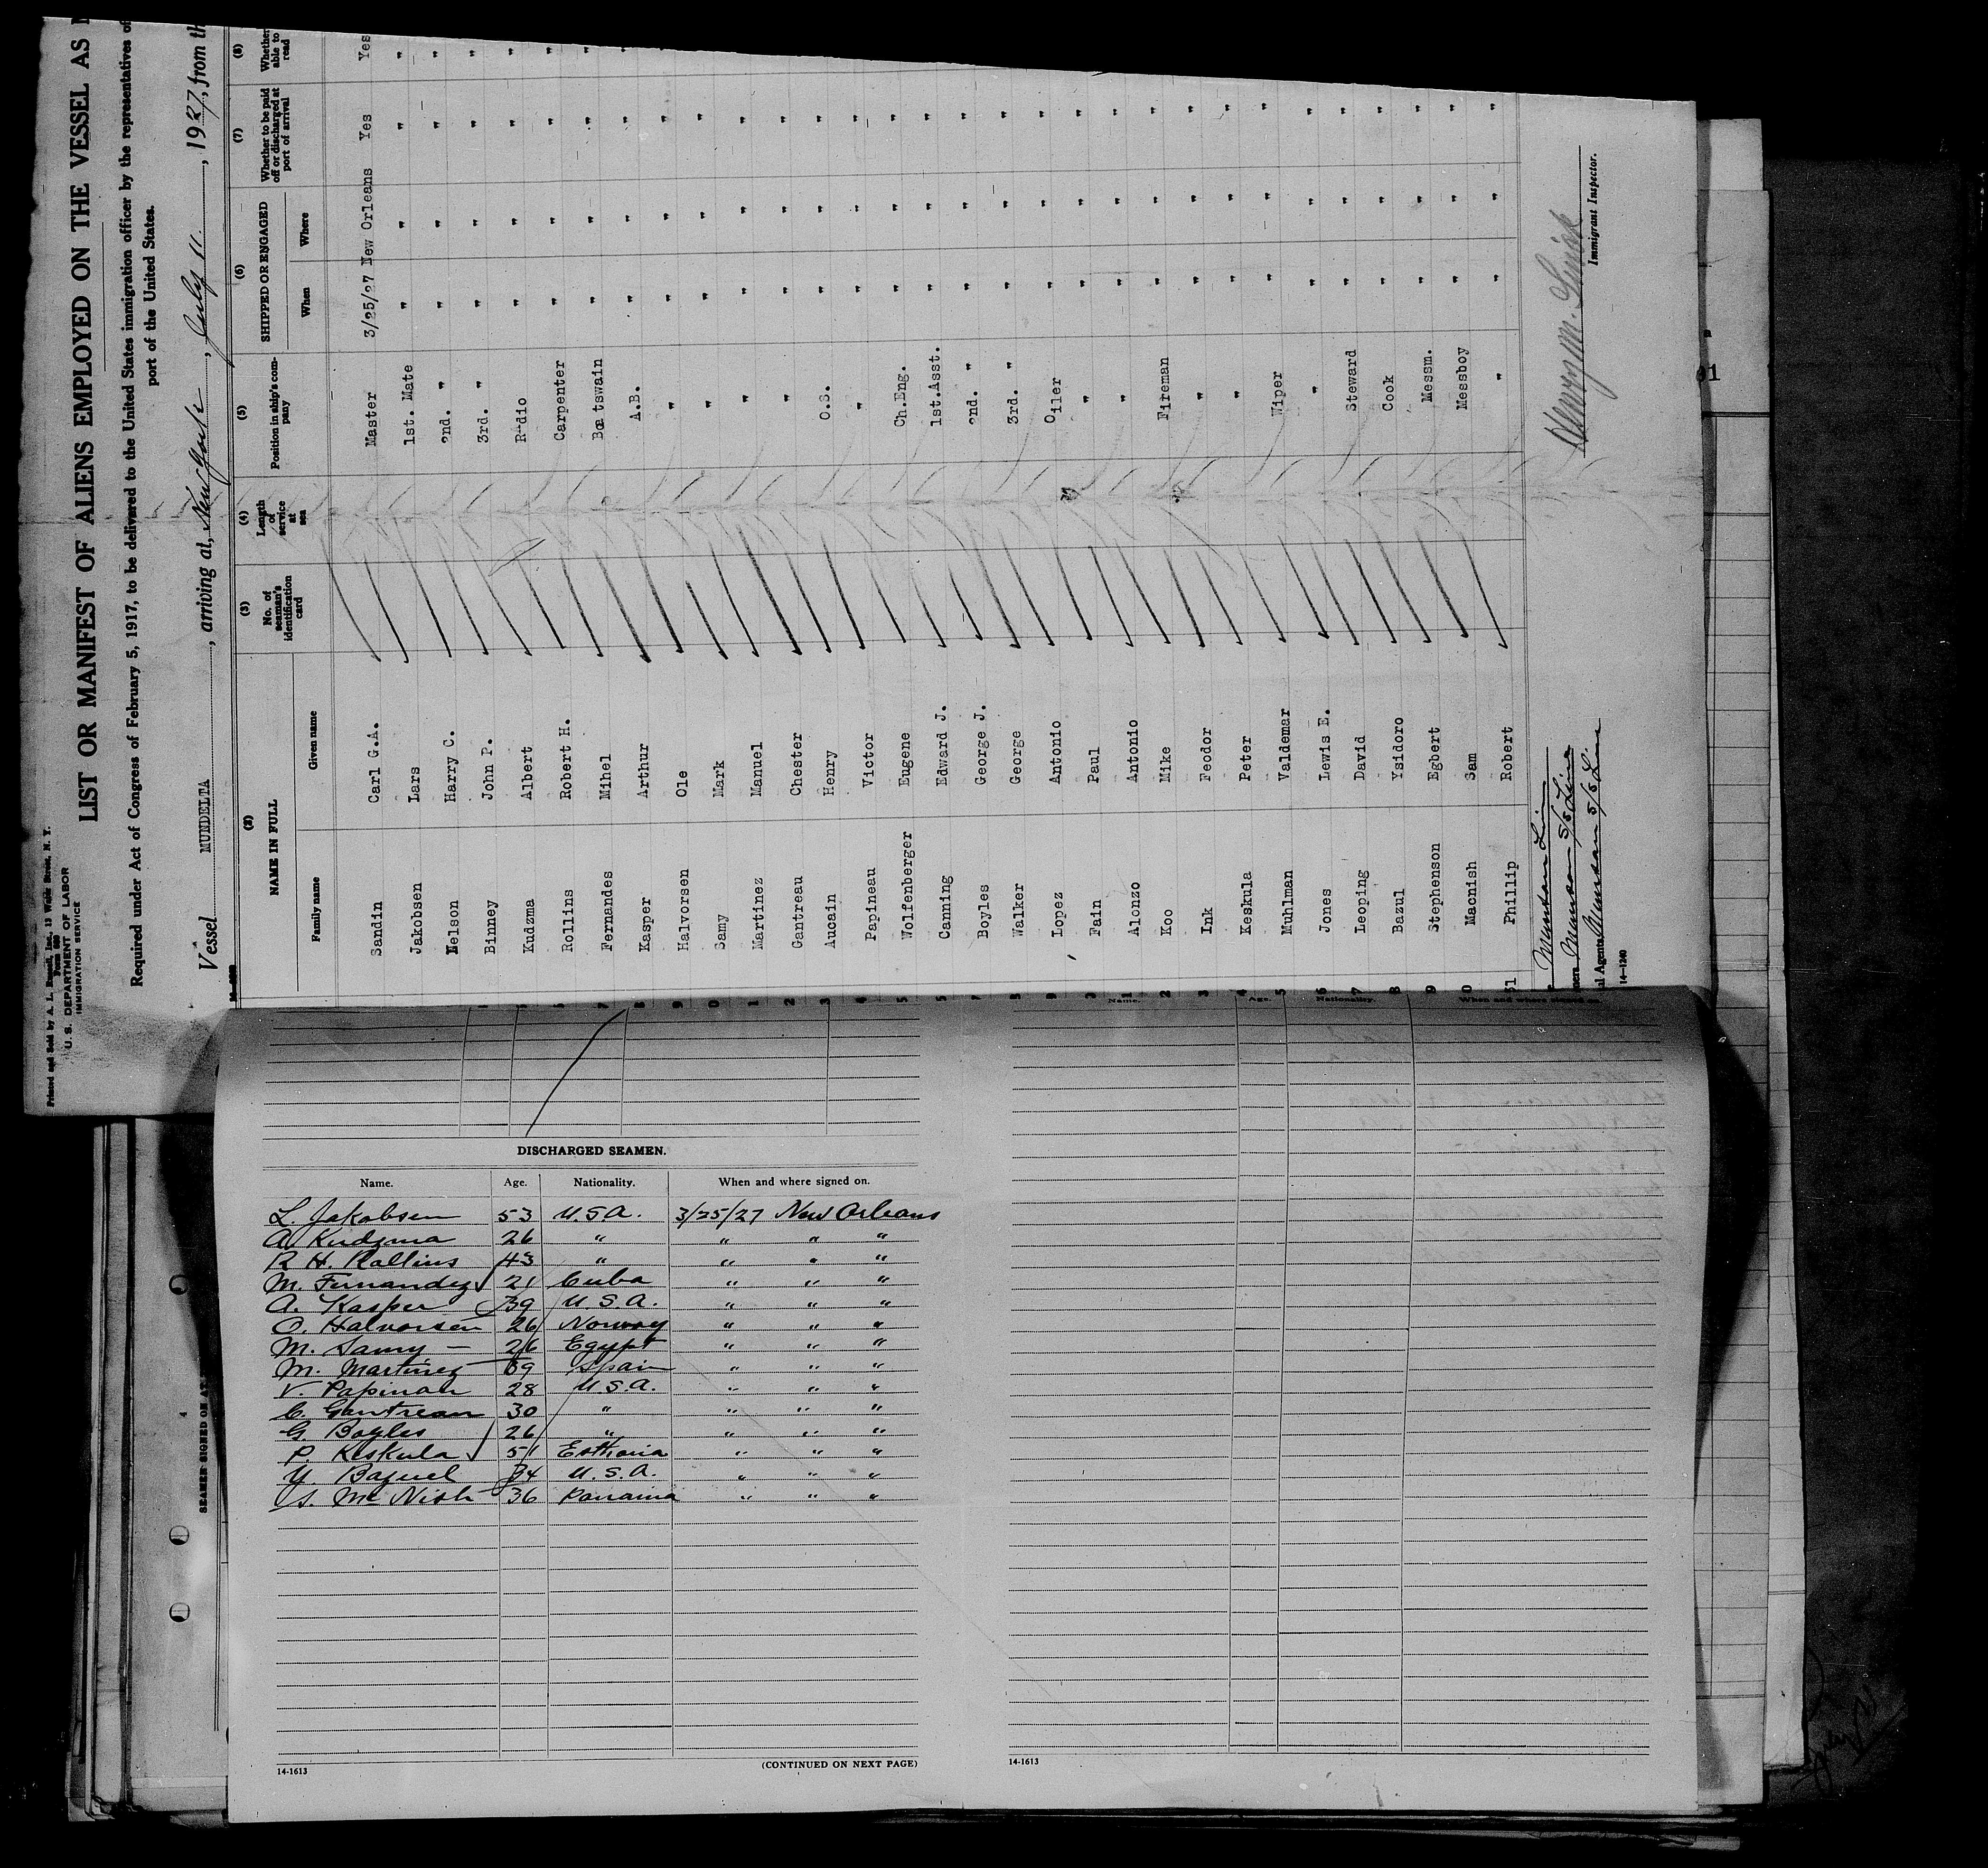 Printed and Sold by A. L. Russell, Inc., 13 Water Street, N. Y.
U. S. DEPARTMENT OF LABOR
IMMIGRATION SERVICE
LIST OR MANIFEST OF ALIENS EMPLOYED ON THE VESSEL AS
Required under Act of Congress of February 5, 1917, to be delivered to the United States immigration officer by the representatives of
port of the United States.
Vessel MUNDELTA, arriving at New York, July 11, 1927, from th
(2) (3) (4) (5) (6) (7) (8)
NAME IN FULL No. of seaman's identification card Length of service at sea Position in ship's company SHIPPED OR ENGAGED Whether to be paid off or discharged at port of arrival Whether able to read
Family name Given name When Where
Sandin Carl G.A. Master 3/25/27 New Orleans Yes Yes
Jakobsen Lars 1st. Mate " " " "
Nelson Harry C. 2nd. " " " " "
Binney John P. 3rd. " " " " "
Kudzma Albert Radio " " " "
Rollins Robert H. Carpenter " " " "
Fernandes Mihel Boatswain " " " "
Kasper Arthur A.B. " " " "
Halvorsen Ole " " " "
Samy Mark " " " "
Martinez Manuel " " " "
Gantreau Chester " " " "
Aucain Henry O.S. " " "
Papineau Victor " " " "
Wolfenberger Eugene Ch.Eng. " " "
Canning Edward J. 1st.Asst. " " "
Boyles George J. 2nd. " " " "
Walker George 3rd. " " " "
Lopez Antonio Oiler " " "
Fain Paul " " " "
Alonzo Antonio " " " "
Koo Mike Fireman " " "
Ink Feodor " " " "
Keskula Peter " " " "
Muhlman Valdemar Wiper " " "
Jones Lewis E. " " " "
Leoping David Steward " " "
Bazul Ysidoro Cook " " "
Stephenson Egbert Messm. " " "
Macnish Sam Messboy " " "
31 Phillip Robert " " " "
Munson Line
Munson S/S Line
Agents Munson S/S Line
14-1240
Immigrant Inspector.
Name. Age. Nationality. When and where signed on.
DISCHARGED SEAMEN.
Name. Age. Nationality. When and where signed on.
L. Jakobsen 53 U.S.A. 3/25/27 New Orleans
A. Kudzma 26 " " " "
R. H. Rollins 43 " " " "
M. Fernandez 21 Cuba " " "
A. Kasper 39 U.S.A. " " "
O. Halvorsen 26 Norway " " "
M. Samy — 26 Egypt " " "
M. Martinez 39 Spain " " "
V. Papinau 28 U.S.A. " " "
C. Gantreau 30 " " " "
G. Boyles 26 " " " "
P. Keskula 51 Esthonia " " "
Y. Bazuel 34 U.S.A. " " "
S. Mc Nish 36 Panama " " "
14-1613 (CONTINUED ON NEXT PAGE) 14-1613
SEAMEN SIGNED ON AT